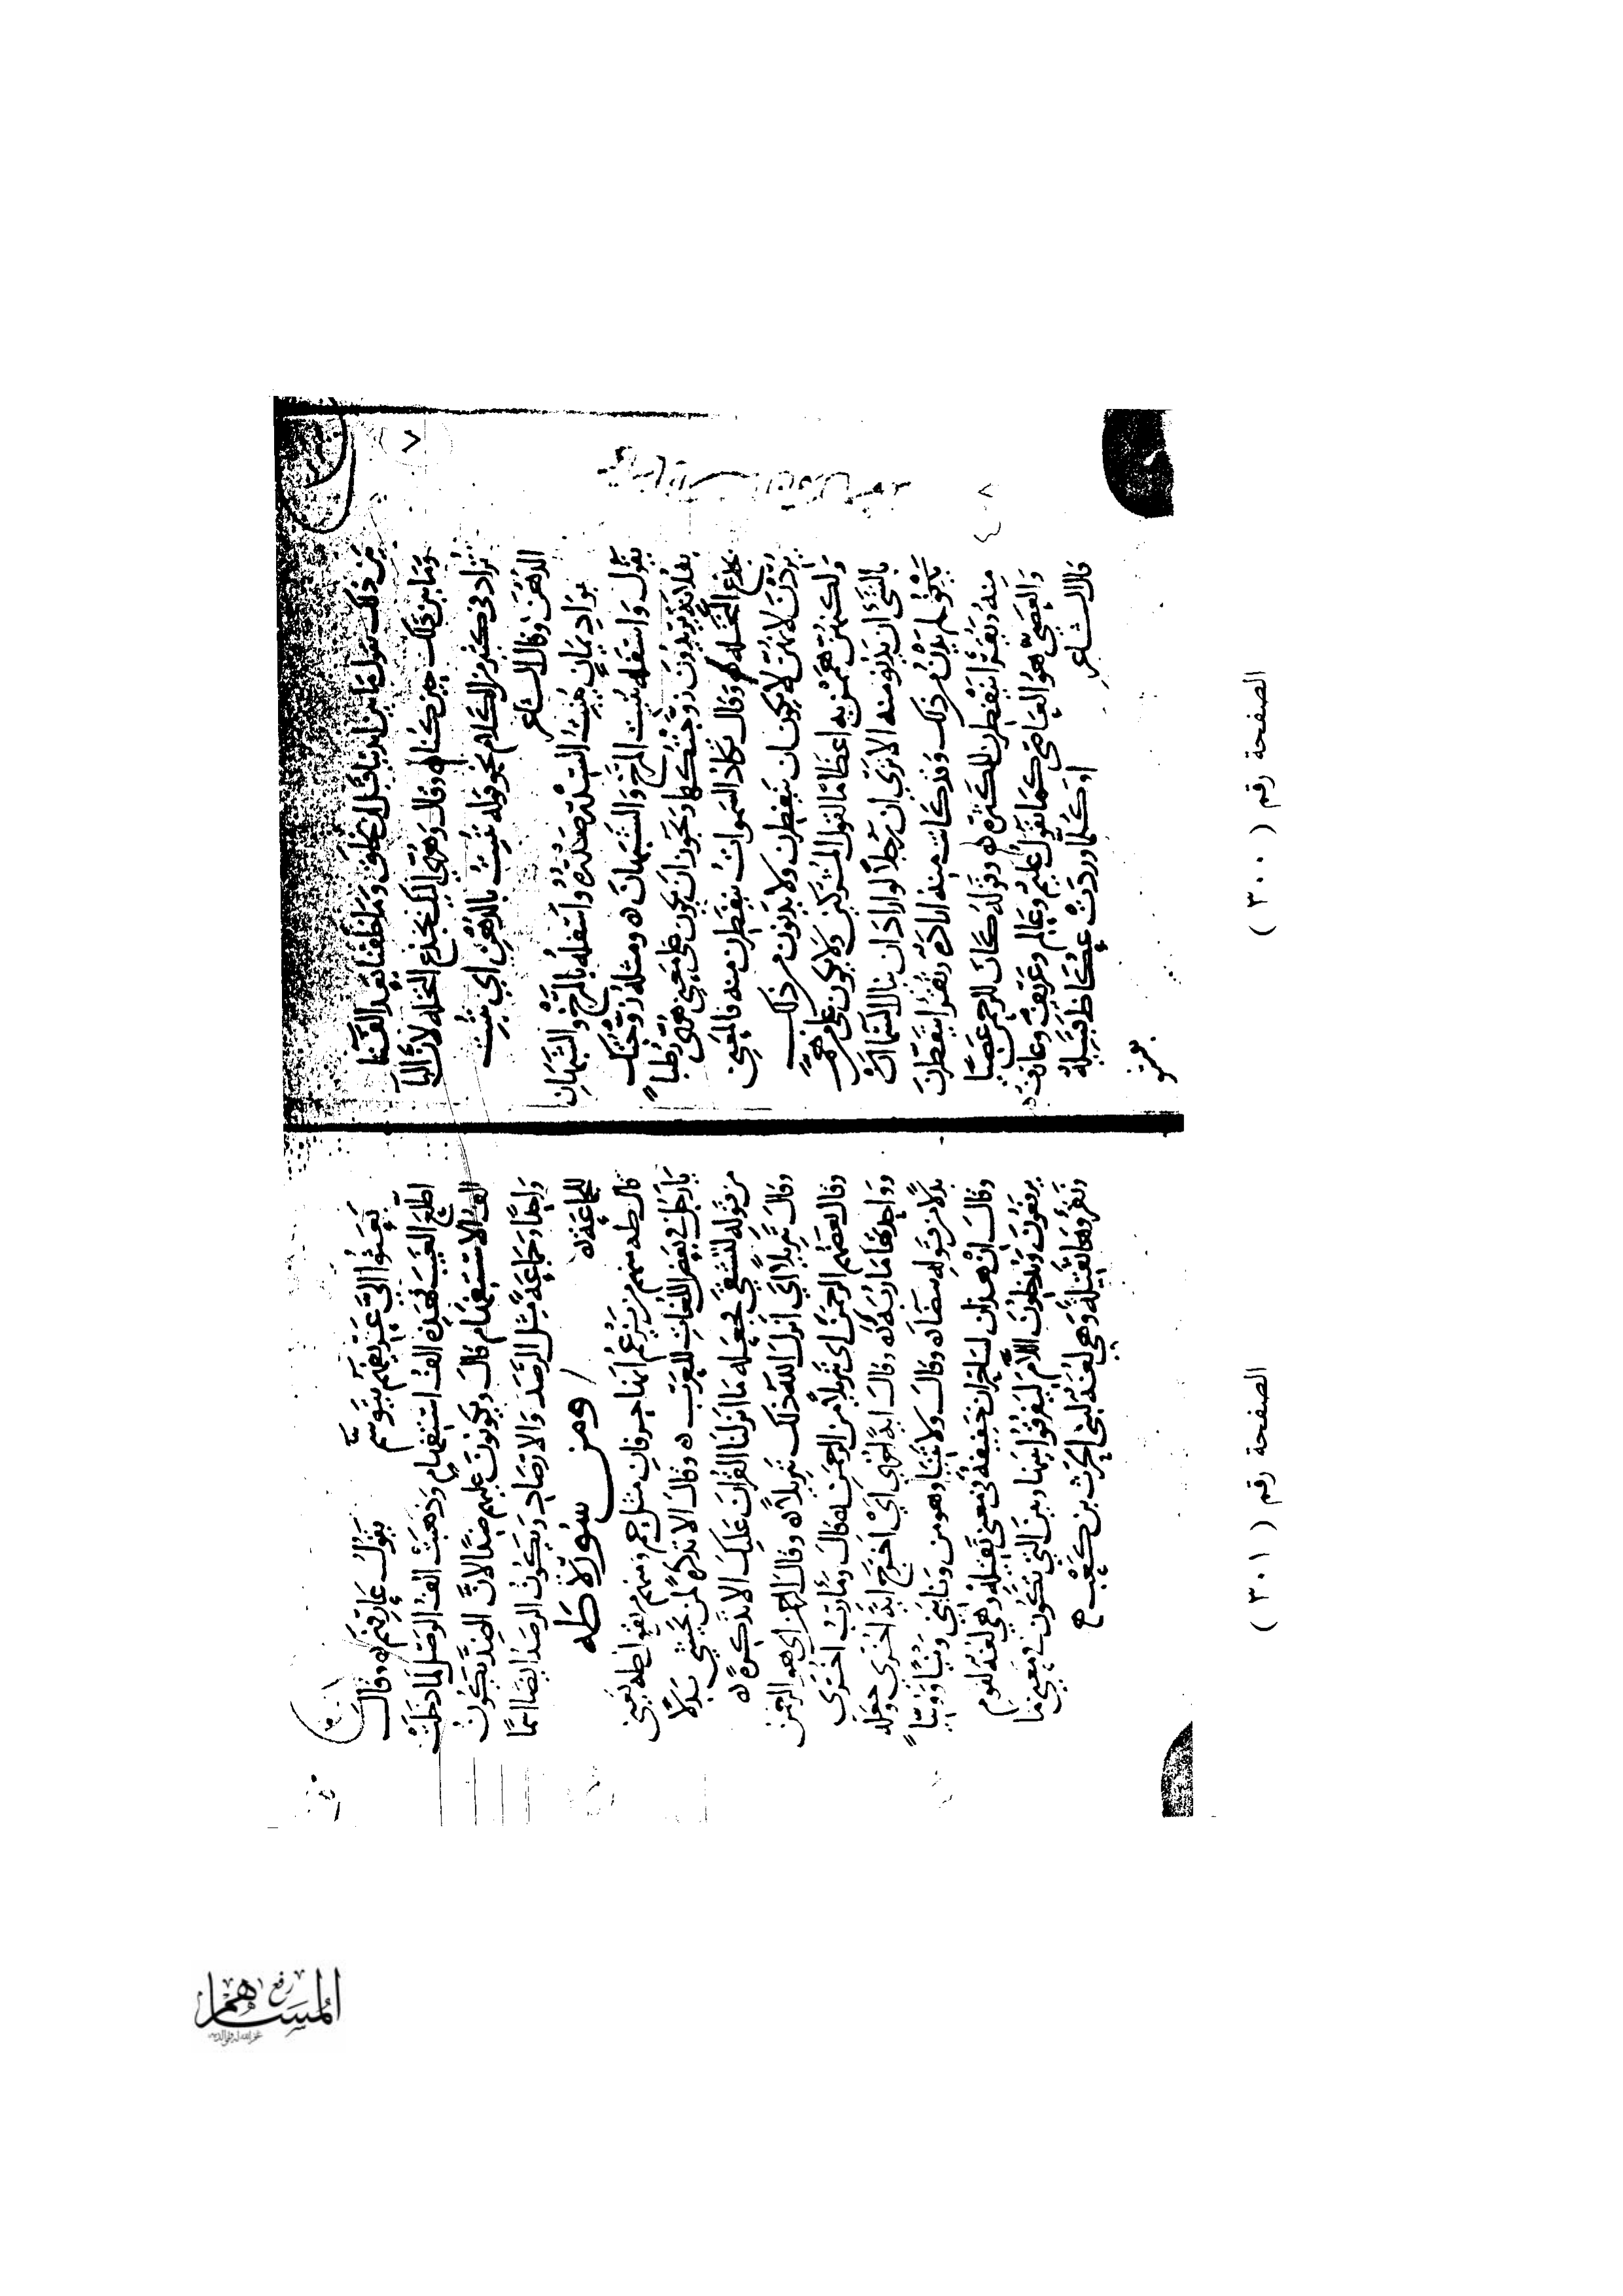 من ذلك يقول ما بين ايدينا قبل ان نخلق وما خلفنا بعد الفنا
وما بين ذلك حين كنا وقال وهزي اليك بجذع النخله لان البا
تزاد في كثير من الكلام نحو قوله تنبت بالدهن اي تنبت
الدهن وقال الشاعر
بواد يمان ينبت السدر صدره واسفله بالمرخ والشبهان
يقول واسفله ينبت المرخ والشبهان ومثله زوجتك
بفلانه يريدون زوجتكها ويجوز ان يكون على معنى هزي رطبا
بجذع النخله وقال تكاد السموات يتفطرن منه فالمعنى
يردن لا انهن لا يكون ان يتفطرن ولا يدنون من ذلك
ولكنهن هممن به اعظاما لقول المشركين ولا يكون على من هم
بالشي ان يدنو منه الا ترى ان رجلا لو اراد ان ينال السما
لم يدن من ذلك وقد كانت منه ارادة وتقرا يتفطرن
منه وتقرا ينفطرن للكثرة وقوله كان للرحمن عصيا
والعصي هو العاصي كما تقول عليم وعالم وعريف وعارف
قال الشاعر او كلما وردت عكاظ قبيلة
بعثو
الصفحة رقم ( ٣٠٠ )
بعثوا الي عريفهم يتوسم يقول عارفهم وقال
اطلع الغيب فهذه الف استفهام وذهبت الف الوصل لما دخلت
الف الاستفهام وقال ويكونون عليهم ضدا لان الضد يكون
واحدا وجماعة مثل الرصد والارصاد ويكون الرصد ايضا اسما
للجماعة
ومن سورة طه
قال طه منهم من يزعم انها حرفان مثل حم ومنهم من يقول طه يعني
يا رجل في بعض اللغات للعرب وقال الا تذكرة لمن يخشى بدلا
من قوله لتشقى فجعله ما انزلنا القران عليك الا تذكرة
وقال تنزيلا اي انزل الله ذلك تنزيلا وقال الرحمن اي هو الرحمن
وقال بعضهم الرحمن اي تنزيلا من الرحمن وقال مأرب اخرى
وواحدتها مأربة وقال اية اخرى اي اخرج اية اخرى وجعله
بدلا من قوله بيضا وقال ولا تنيا وهو من ونا يني ونيا وونيا
وقال ان هذان لساحران خفيفة في معنى ثقيلة وهي لغة لقوم
يرفعون ويدخلون اللام ليفرقوا بينها وبين التي تكون في معنى ما
ونقروها ثقيلة وهي لغة لبني الحرث بن كعب
الصفحة رقم ( ٣٠١ )
رفع
المساهم
غفر الله له ولوالديه